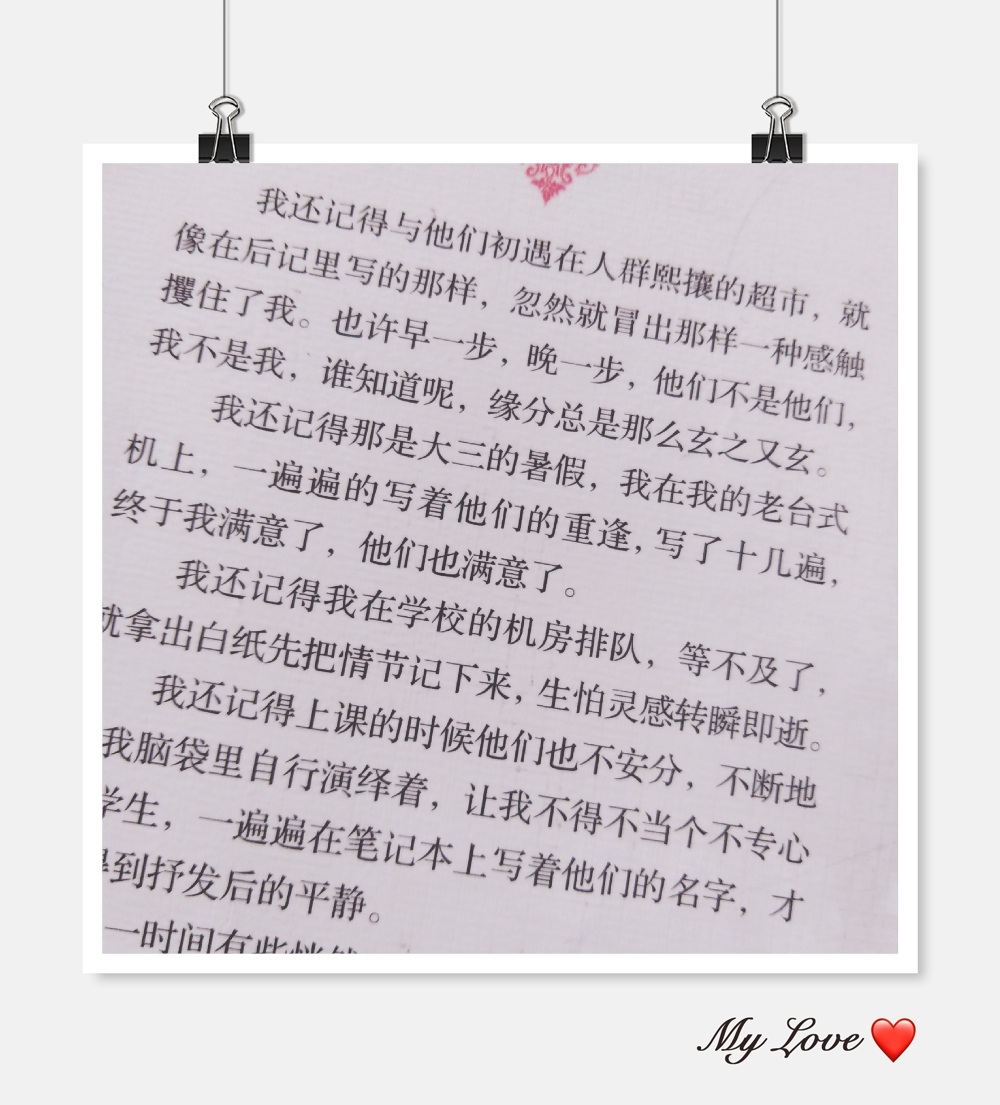 我还记得与他们初遇在人群熙攘的超市，就
像在后记里写的那样，忽然就冒出那样一种感触
攫住了我。也许早一步，晚一步，他们不是他们，
我不是我，谁知道呢，缘分总是那么玄之又玄。
我还记得那是大三的暑假，我在我的老台式
机上，一遍遍的写着他们的重逢，写了十几遍，
终于我满意了，他们也满意了。
我还记得我在学校的机房排队，等不及了，
就拿出白纸先把情节记下来，生怕灵感转瞬即逝。
我还记得上课的时候他们也不安分，不断地
我脑袋里自行演绎着，让我不得不当个不专心
学生，一遍遍在笔记本上写着他们的名字，才
得到抒发后的平静。
一时间有些
My Love